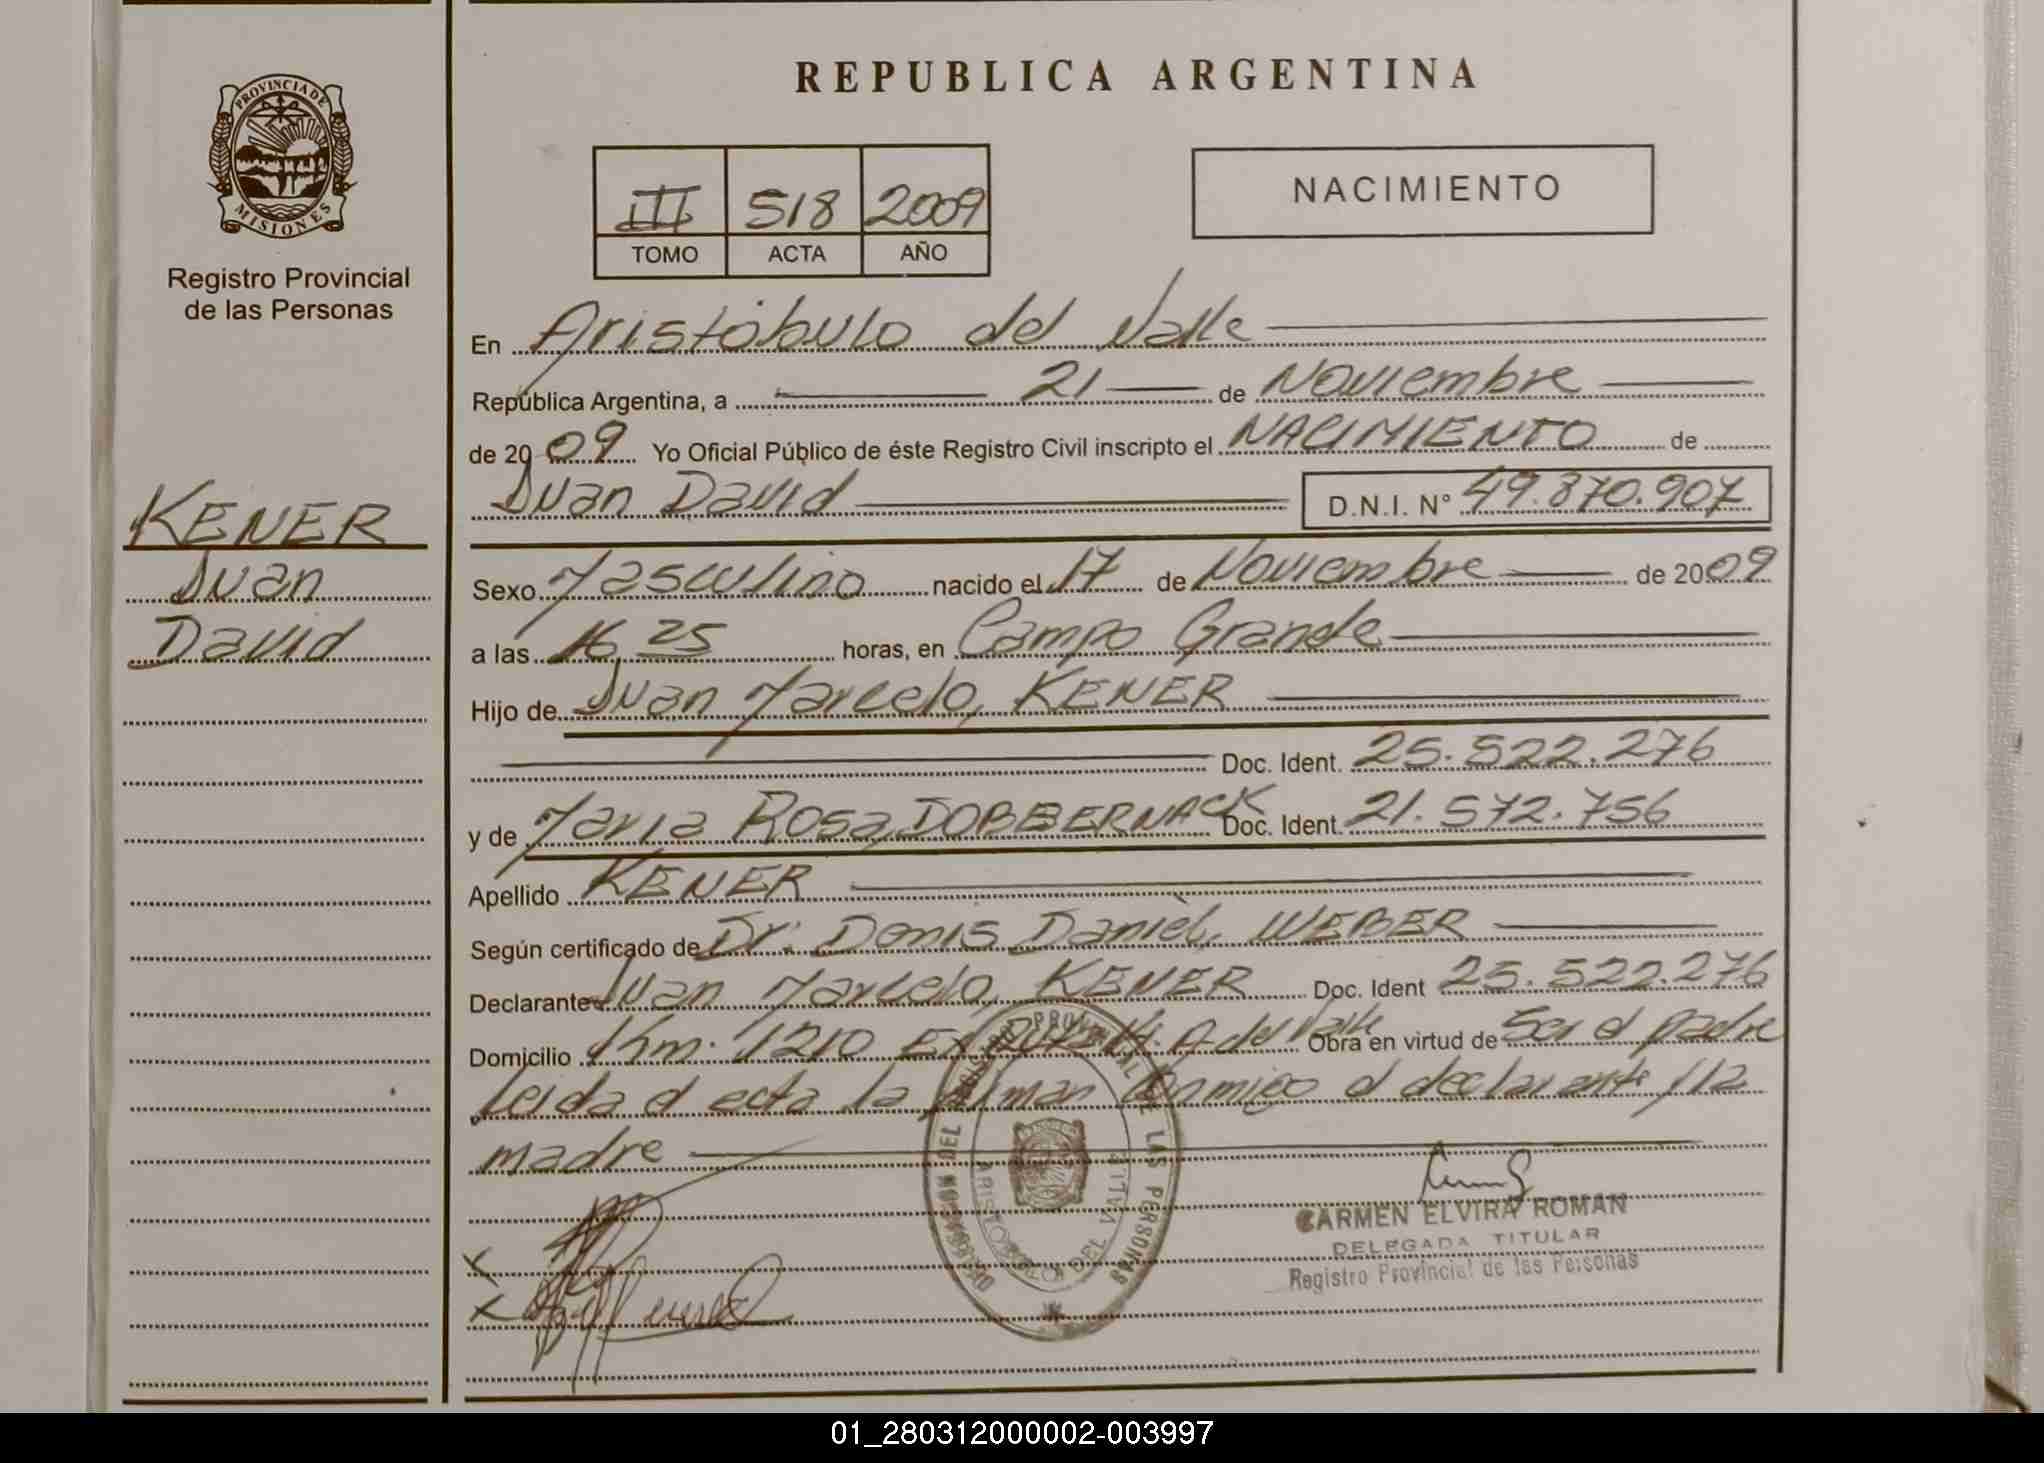 PROVINCIA DE
MISIONES
Registro Provincial
de las Personas
KENER
Juan
David
REPUBLICA ARGENTINA
III 518 2009
TOMO ACTA AÑO
NACIMIENTO
En Aristóbulo del Valle
República Argentina, a 21 de Noviembre
de 2009 Yo Oficial Público de éste Registro Civil inscripto el NACIMIENTO de
Juan David D.N.I. N° 49.870.907
Sexo Masculino nacido el 17 de Noviembre de 2009
a las 16 25 horas, en Campo Grande
Hijo de Juan Marcelo, KENER
Doc. Ident. 25.522.276
y de Maria Rosa, DOBBERNACK Doc. Ident. 21.572.756
Apellido KENER
Según certificado de Dr. Denis Daniel, WEBER
Declarante Juan Marcelo, KENER Doc. Ident 25.522.276
Domicilio Km. 1210 Ex Ruta 14. A del Valle Obra en virtud de Ser el padre
Leida el acta la firman conmigo el declarante y la
madre
CARMEN ELVIRA ROMAN
DELEGADA TITULAR
Registro Provincial de las Personas
PROVINCIAL DE LAS PERSONAS
ARISTOBULO DEL VALLE
01_280312000002-003997